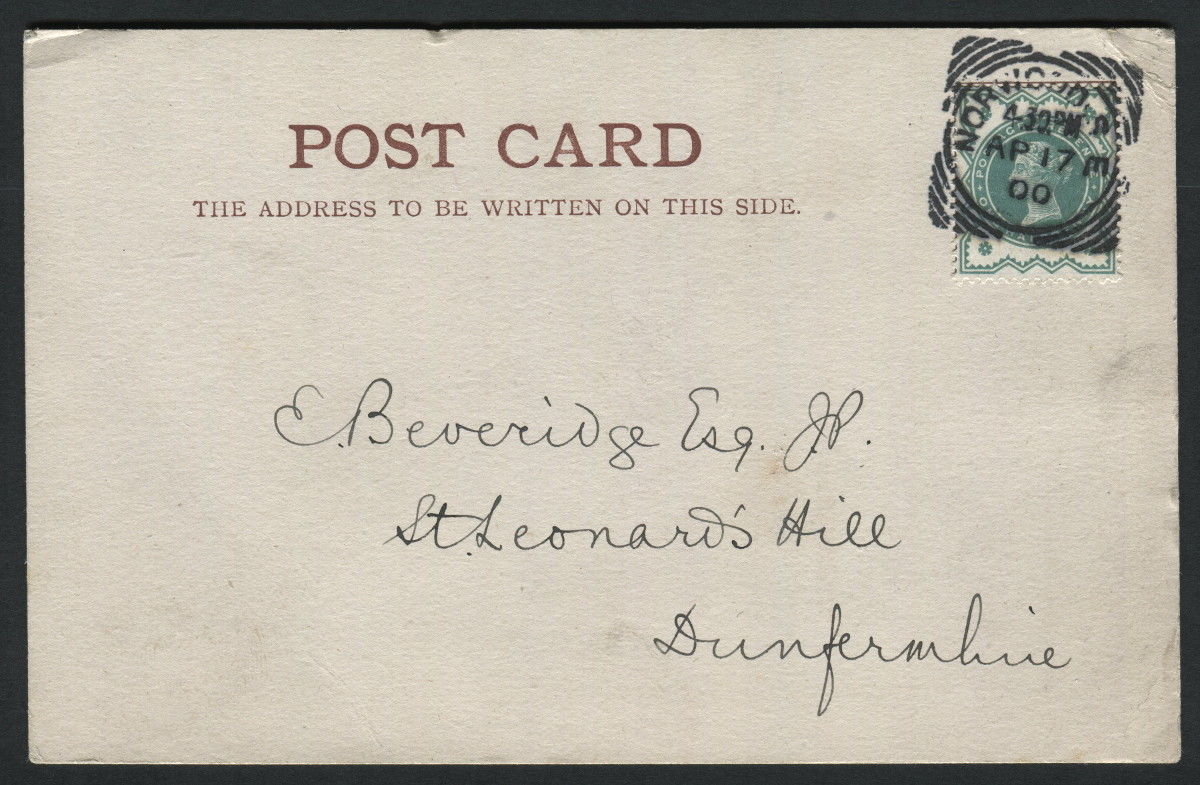 POST CARD
THE ADDRESS TO BE WRITTEN ON THIS SIDE.
NORWOOD S.E
4.30PM
AP 17
00
E. Beveridge Esq. J.P.
St. Leonard's Hill
Dunfermline